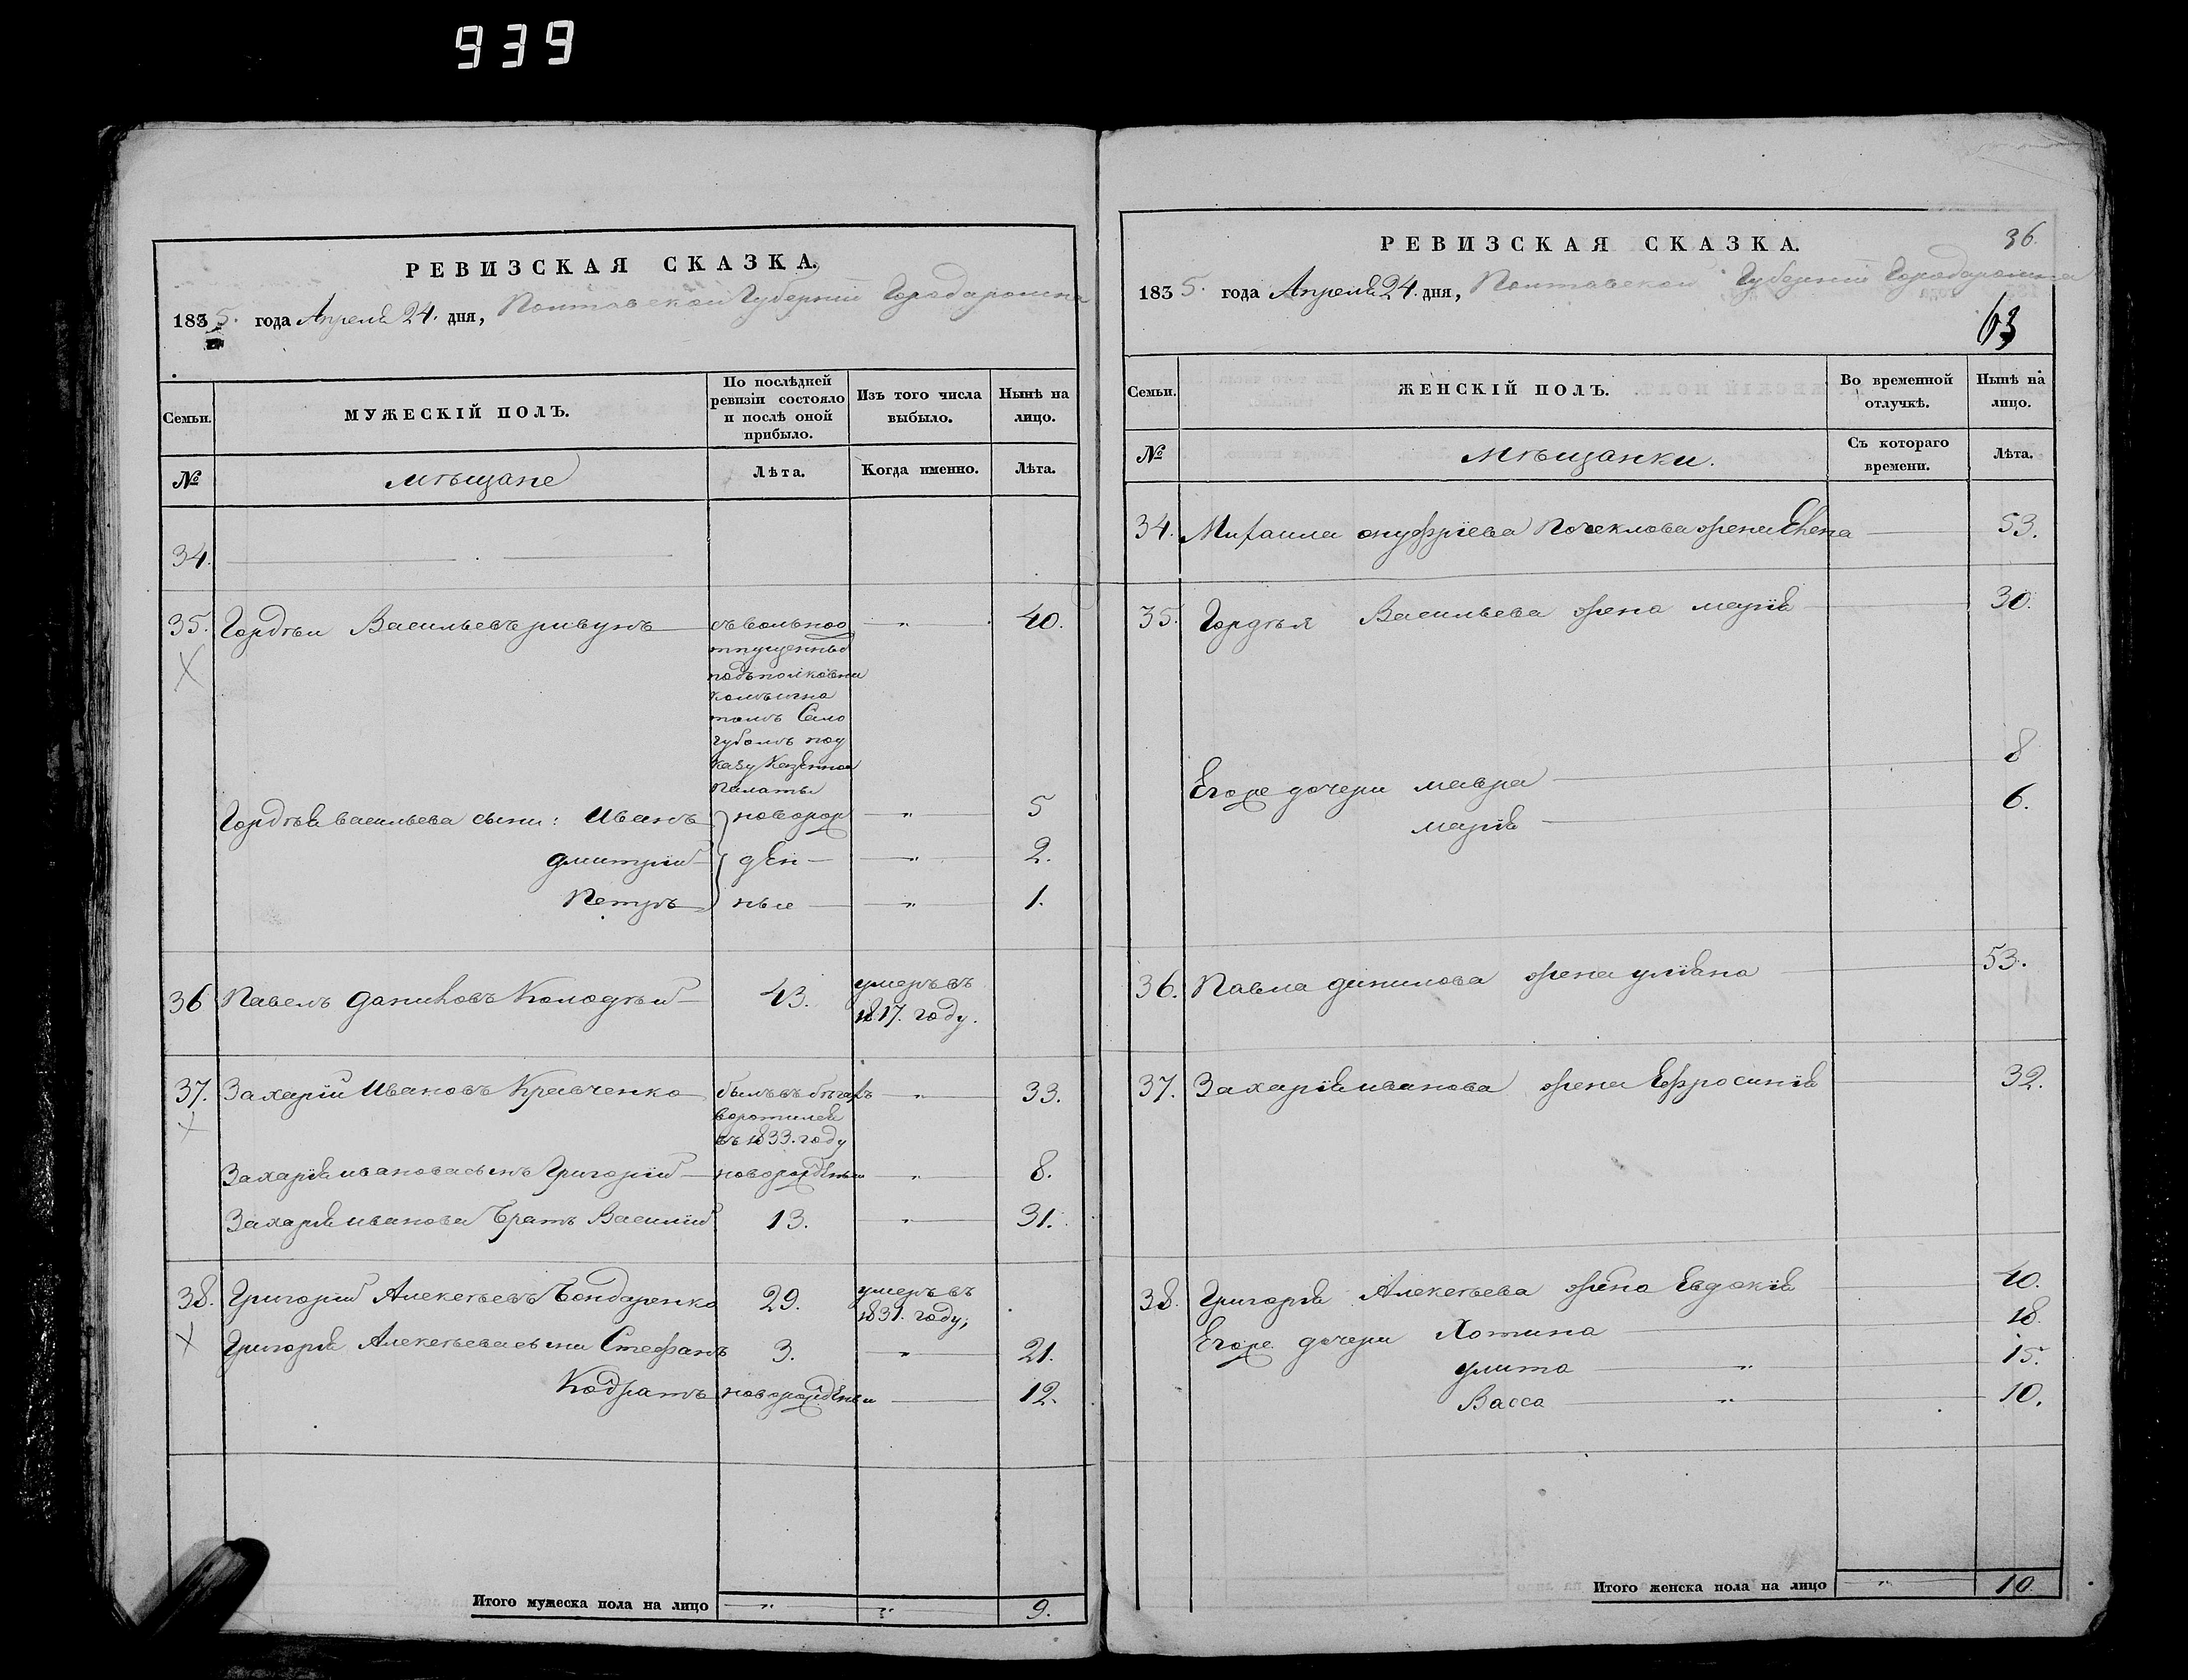 939
РЕВИЗСКАЯ СКАЗКА.
1835. года Апреля 24. дня, Полтавской Губернии Города
Семьи.
МУЖЕСКІЙ ПОЛЪ.
По послѣдней ревизіи состояло и послѣ оной прибыло.
Изъ того числа выбыло.
Нынѣ на лицо.
№
мѣщане
Лѣта.
Когда именно.
Лѣта.
34.
35. Гордѣй Васильевъ 40.
тпущенный
подъполковни
комъ
Сало
губомъ по у
казу Казенной
Палаты
Гордѣя васильева сыни: Иванъ новорож 5
дмитрий ден 2.
Петръ ные 1.
36 Павелъ даниловъ Колодѣй 43. умеръ въ
1817. году.
37. Захарій Ивановъ Кравченко былъ въ бѣгахъ 33.
воротился
въ 1833. году
Захарія иванова сынъ Григорий новорожденъ 8.
Захарія иванова братъ Василий 13. 31.
38. Григорий Алексѣевъ Бондаренко 29. умеръ въ
1831. году;
Григорія Алексѣева сыни Стефанъ 3. 21.
Кодратъ новорожденъ 12.
Итого мужеска пола на лицо 9.
РЕВИЗСКАЯ СКАЗКА.
36.
1835. года Апреля 24. дня, Полтавской Губернии Города
63
Семьи.
ЖЕНСКІЙ ПОЛЪ.
Во временной отлучкѣ.
Нынѣ на лицо.
№
Мѣщанки.
Съ котораго времени.
Лѣта.
34. Михаила онуфріева жена Елена 53.
35. Гордѣя Васильева жена марія 30.
Егоже дочери мавра 8
марія 6.
36. Павла данилова жена уліяна 53.
37. Захарія иванова жена Ефросинія 32.
38. Григорія Алексѣева жена Евдокія 40.
Егоже дочери Хотина 18.
улита 15.
Васса 10.
Итого женска пола на лицо 10